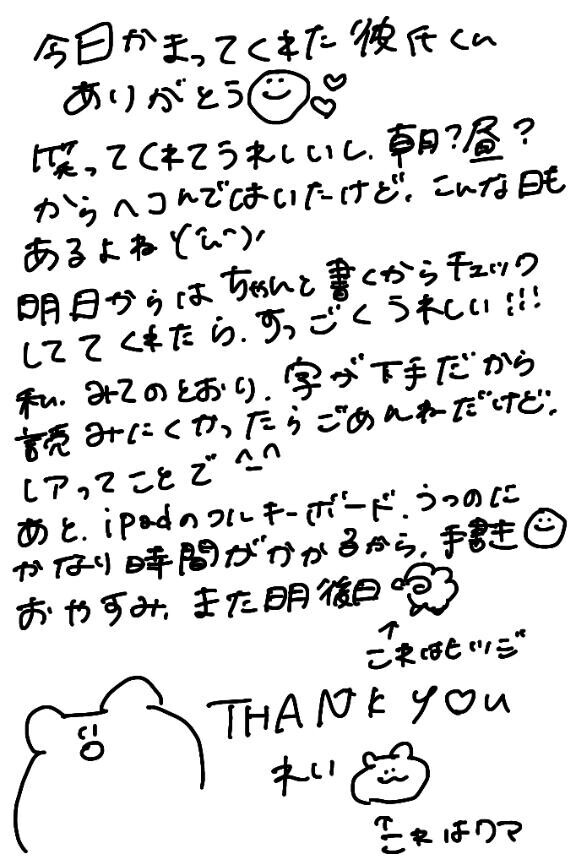 今日かまってくれた彼氏くん
ありがとう
笑ってくれてうれしいし、朝?昼?
からヘコんではいたけど、こんな日も
あるよね\(^^)/
明日からはちゃんと書くからチェック
しててくれたら、すっごくうれしい!!!
私、みてのとおり、字が下手だから
読みにくかったらごめんねだけど、
レアってことで^_^
あと、iPadのフルキーボード、うつのに
かなり時間がかかるから、手書き
おやすみ、また明後日
↑
これはヒツジ
THANK YOU
れい
↑
これはクマ